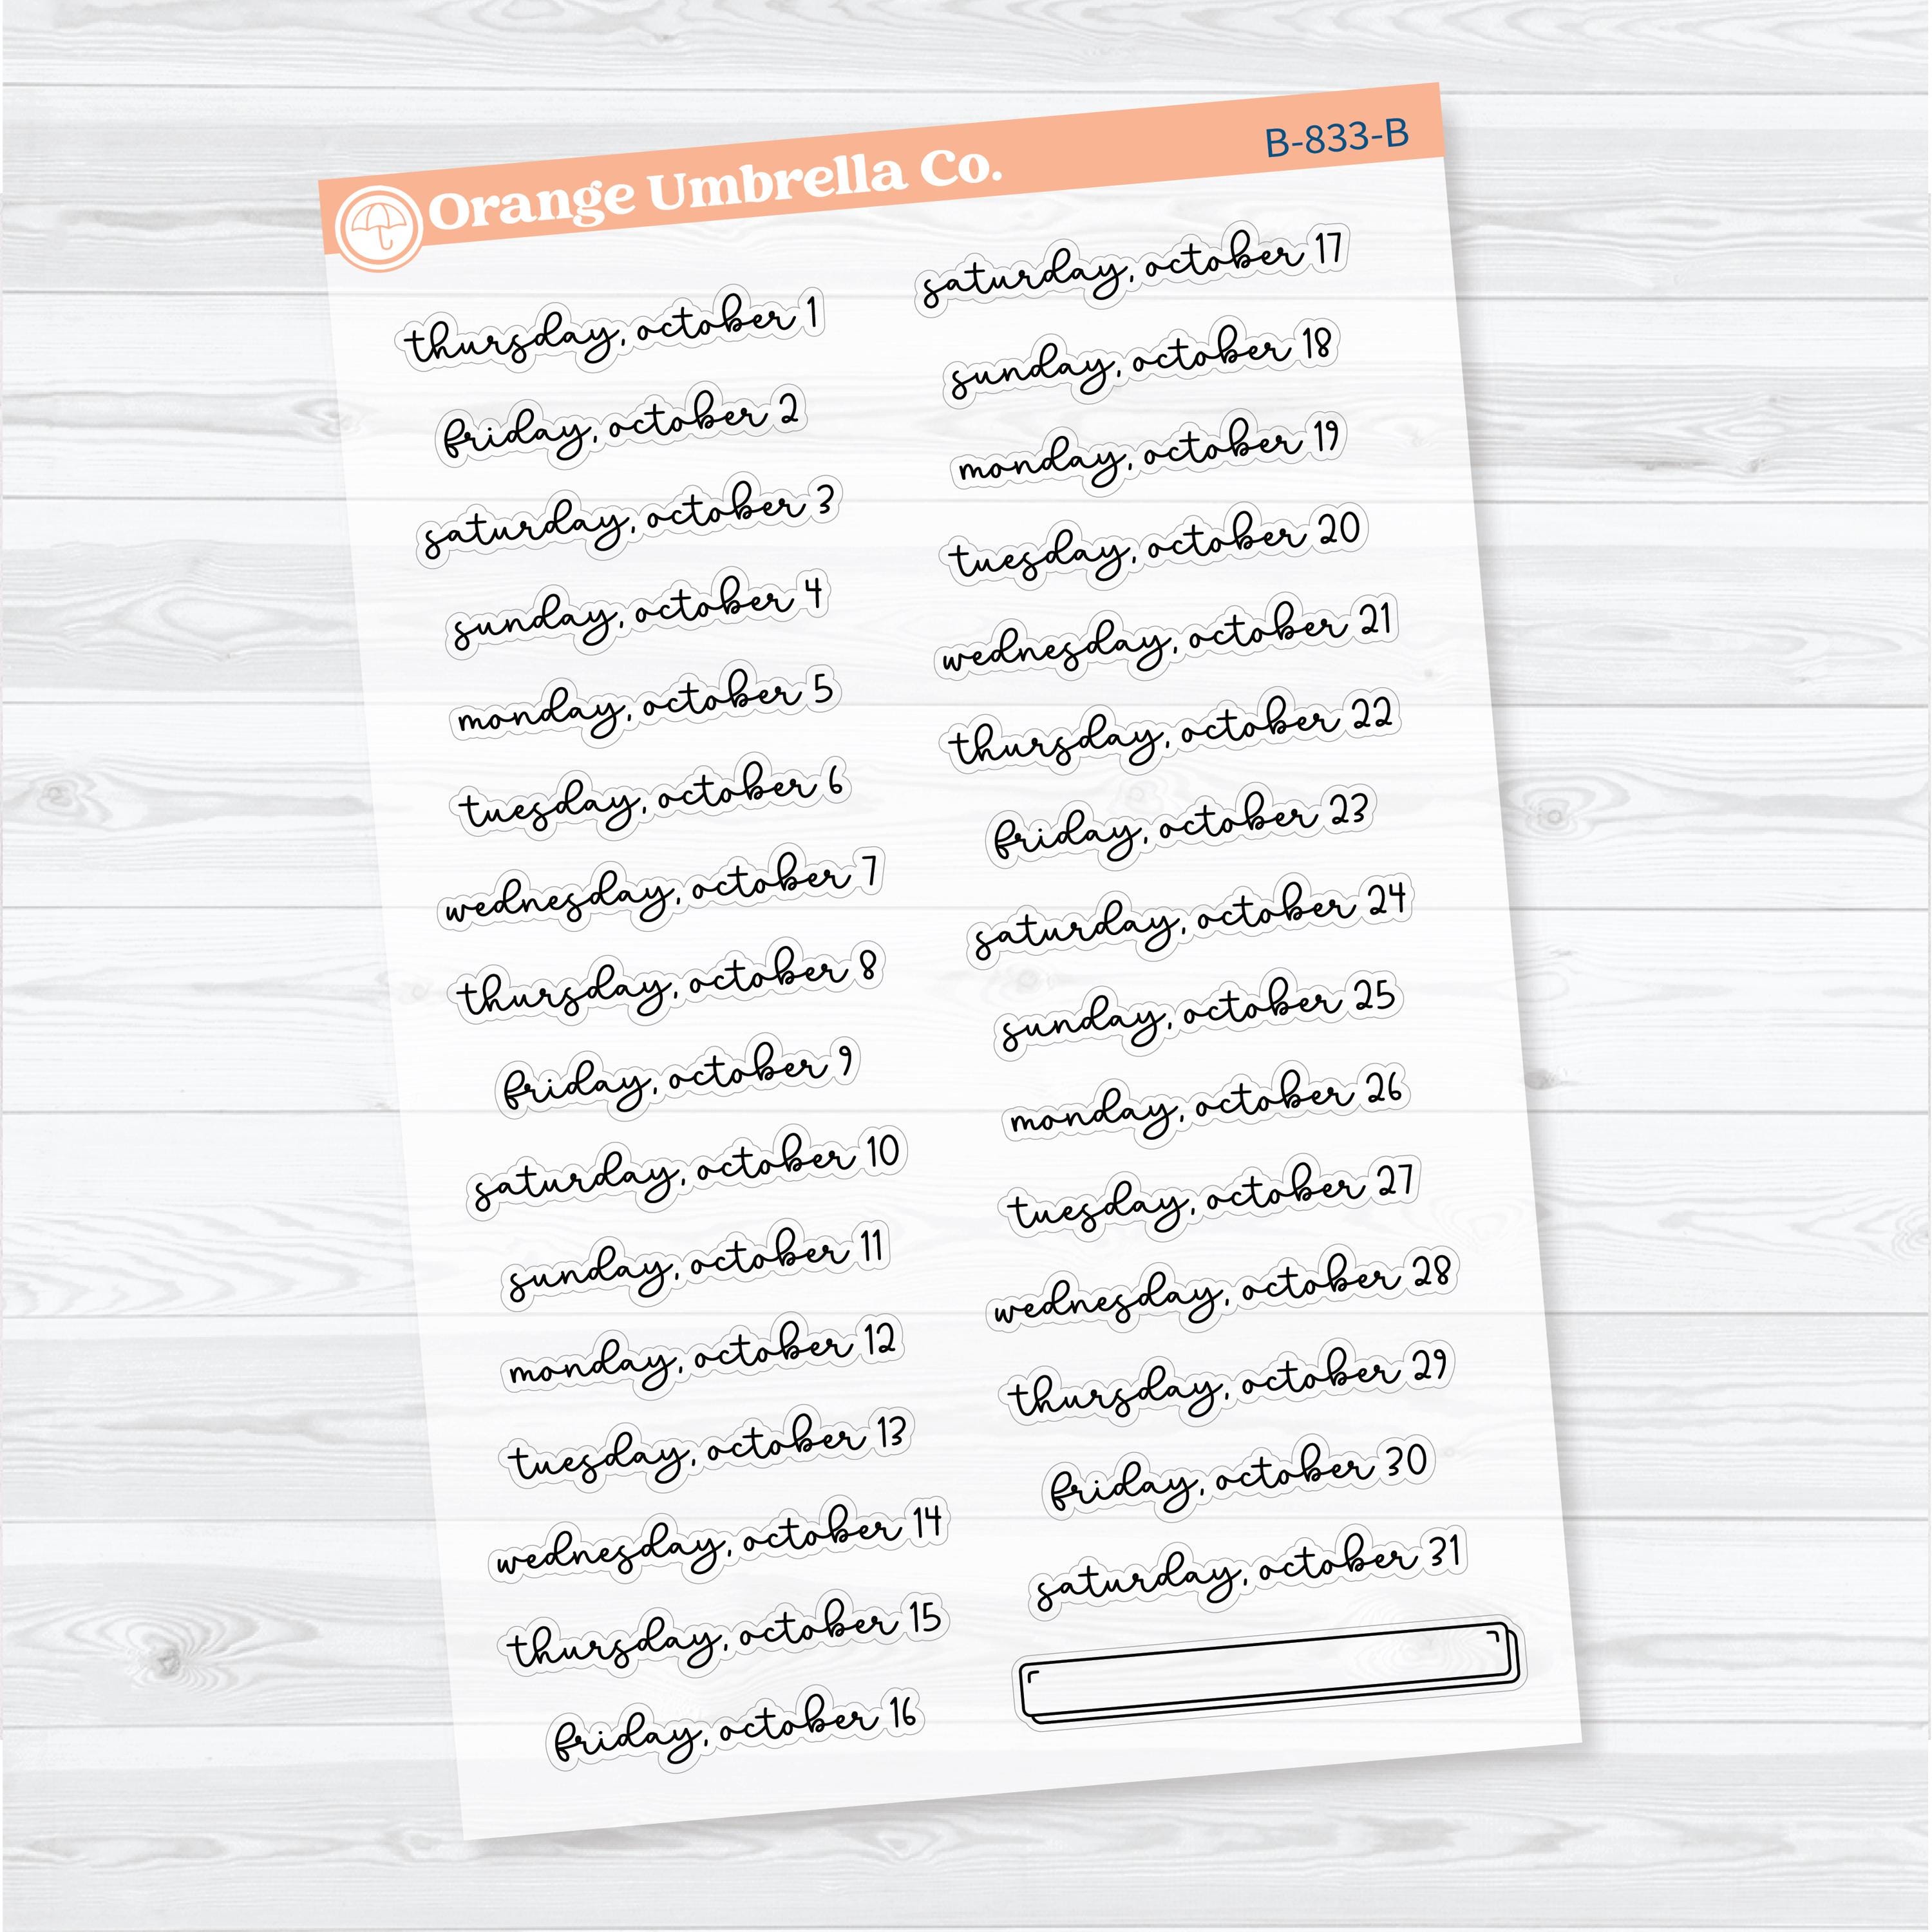 Orange Umbrella Co.
B-833-B
thursday, october 1
friday, october 2
saturday, october 3
sunday, october 4
monday, october 5
tuesday, october 6
wednesday, october 7
thursday, october 8
friday, october 9
saturday, october 10
sunday, october 11
monday, october 12
tuesday, october 13
wednesday, october 14
thursday, october 15
friday, october 16
saturday, october 17
sunday, october 18
monday, october 19
tuesday, october 20
wednesday, october 21
thursday, october 22
friday, october 23
saturday, october 24
sunday, october 25
monday, october 26
tuesday, october 27
wednesday, october 28
thursday, october 29
friday, october 30
saturday, october 31